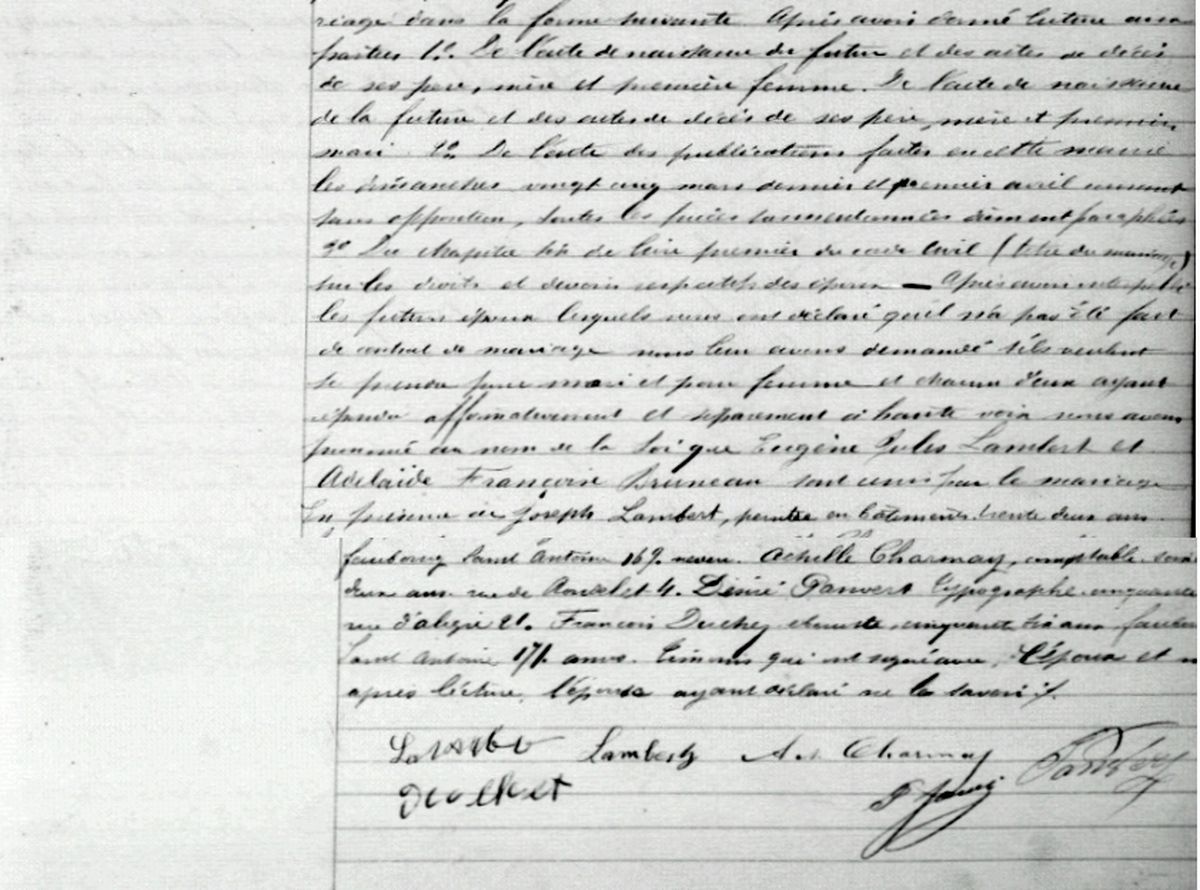 riage dans la forme suivante Après avoir donné lecture aux
parties 1º. De l'acte de naissance du futur et des actes de décès
de ses père, mère et première femme. De l'acte de naissance
de la future et des actes de décès de ses père, mère et premier
mari De l'acte des publications faites en cette mairie
les dimanches vingt cinq mars dernier et premier avril courant
sans opposition, toutes les pièces susmentionnées dûment paraphées
2º Du chapitre six du livre premier du code Civil (titre du mariage)
sur les droits et devoirs respectifs des époux — Après avoir interpellé
les futurs époux lesquels nous ont déclaré qu'il n'a pas été fait
de contrat de mariage nous leur avons demandé s'ils veulent
se prendre pour mari et pour femme et chacun d'eux ayant
répondu affirmativement et séparément à haute voix nous avons
prononcé au nom de la loi que Eugène Jules Lambert et
Adelaïde Françoise Bruneau sont unis par le mariage
En présence de Joseph Lambert, peintre en bâtiments trente deux ans
faubourg Saint Antoine 167. neveu. Achille Charmay, comptable
deux ans. rue de 4. Désiré typographe cinquante
rue d'aligre 21. François ébéniste, cinquante six ans, faubou
Saint Antoine 171. amis. Témoins qui ont signé avec, L'époux et n
après lecture, l'épouse ayant déclaré ne le savoir ./.
Lambert A. Charmay